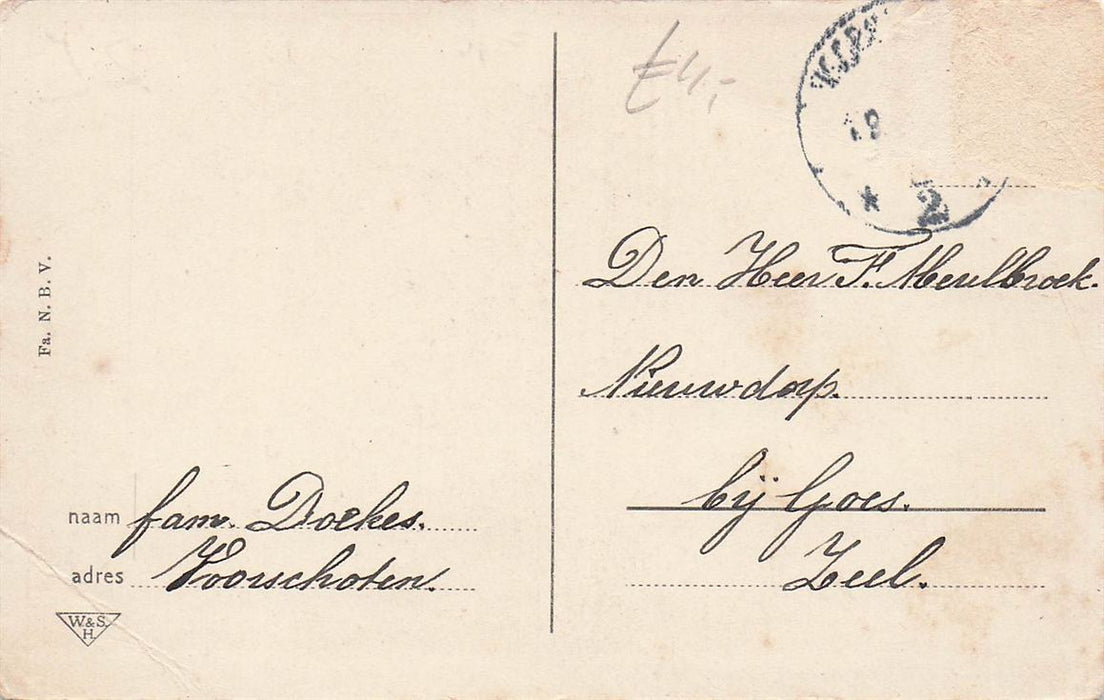 € 4,-
19
* 2
Den Heer F. Meulbroek.
Nieuwdorp.
bij Goes.
Zeel.
Fa. N. B. V.
naam fam. Doekes.
adres Voorschoten.
W&S.
H.